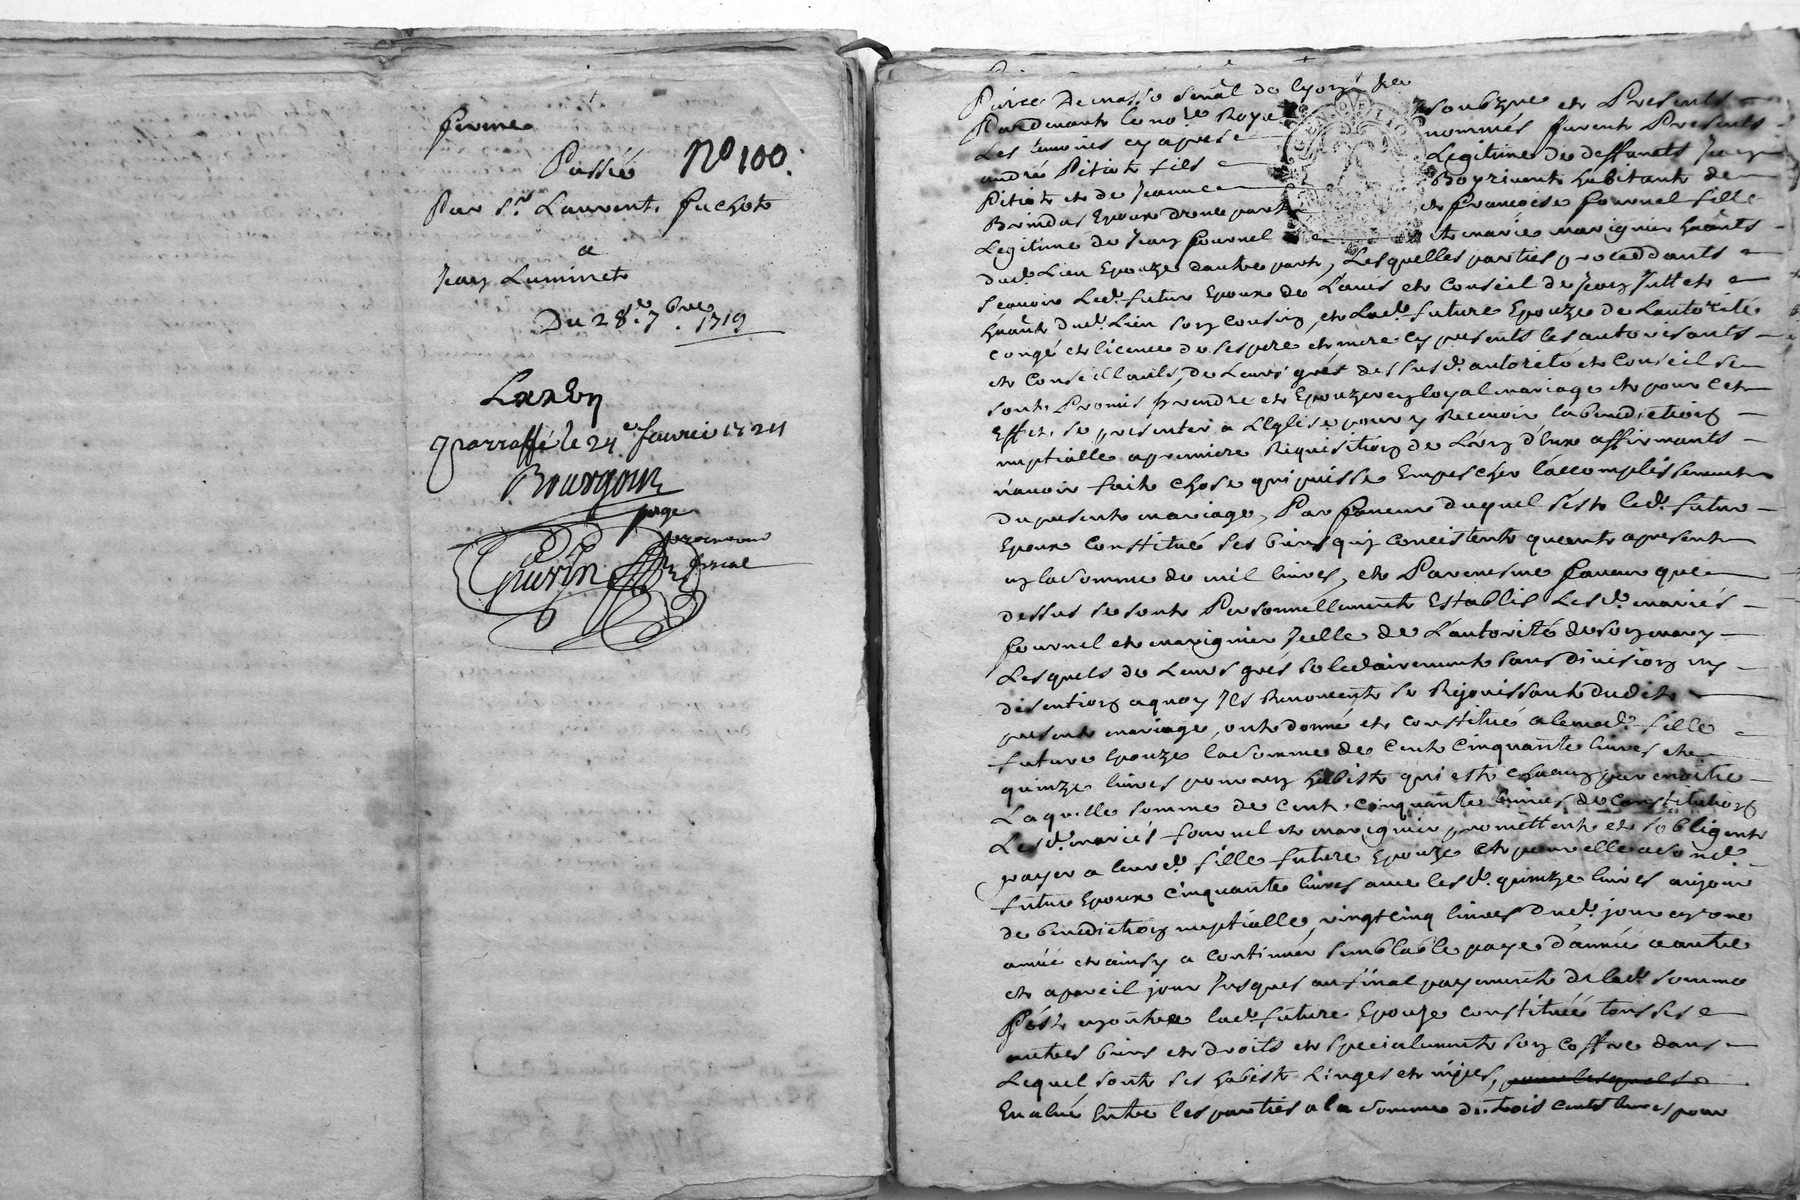 ferme
Passée No 100.
Par Sr. Laurent fuchot
a
Jean Luminet
Du 28e. 7bre. 1719
parraffé le 24e janvier 1721
Bourgoin
juge
Guerin procureur
fiscal
GEN DE LION
Pardevant le nore Royal soubzne et Presents
Les temoins cy apres nommés furent Presents
andré Pitiot fils Legitime de deffunts Jean
Pitiot et de Jeanne habitant de
Brindas Epoux d'une part et francoise fournel fille
Legitime de Jean fournel et marie marignier hãnts
dud. Lieu Epouze dautre part, Lesquelles parties proceddants
sçauoir Led. futur Epoux de L'auis et Conseil de Jean
hãnt dud. Lieu son cousin, et Lad. future Epouze de L'autorité
congé et licence de ses pere et mere cy presents les autorisants
et Conseillants, de Leurs grés dessusd. autorité et Conseil se
sont Promis prendre et Epouzer en loyal mariage et pour cet
Effet, se presenter a L'Eglise pour y Receuoir la benediction
nuptialle a premiere Requisition de L'un d'Eux affirmants
n'auoir fait chose qui puisse Empescher l'accomplissement
du present mariage, Par faueur duquel s'est led. futur
Epoux Constitué ses biens qui concistent quant a present
en la somme de mil liures, et Par mesme faueur que
dessus se sont Personnellement Establis Les d. mariés
fournel et marignier Icelle de L'autorité de son mary
Lesquels de Leurs grés solidairement sans diuision ny
discution a quoy Ils Renoncent se Rejouissant dudit
present mariage, ont donné et constitué a leurd. fille
future Epouze la somme de Cent Cinquante liures et
quinze liures pour un habist qui est chacun par moitie
Laquelle somme de Cent Cinquante liures de Constitution
Lesd. mariés fournel et marignier promettent et s'obligent
payer a leurd. fille future Epouze et pour elle a sond.
futur Epoux Cinquante liures auec lesd. quinze liures au jour
de benediction nuptialle, vingt cinq liures dud. jour en une
année et ainsy a continuer semblable paye d'année a autre
et a pareil jour Jusques au final payement de lad. somme
S'est en outre lad. future Epouze constituée tous ses
autres biens et droits et specialement son coffre dans
Lequel sont ses habist Linges et nipes,
Eualué Entre les parties a la somme de trois cents liures pour